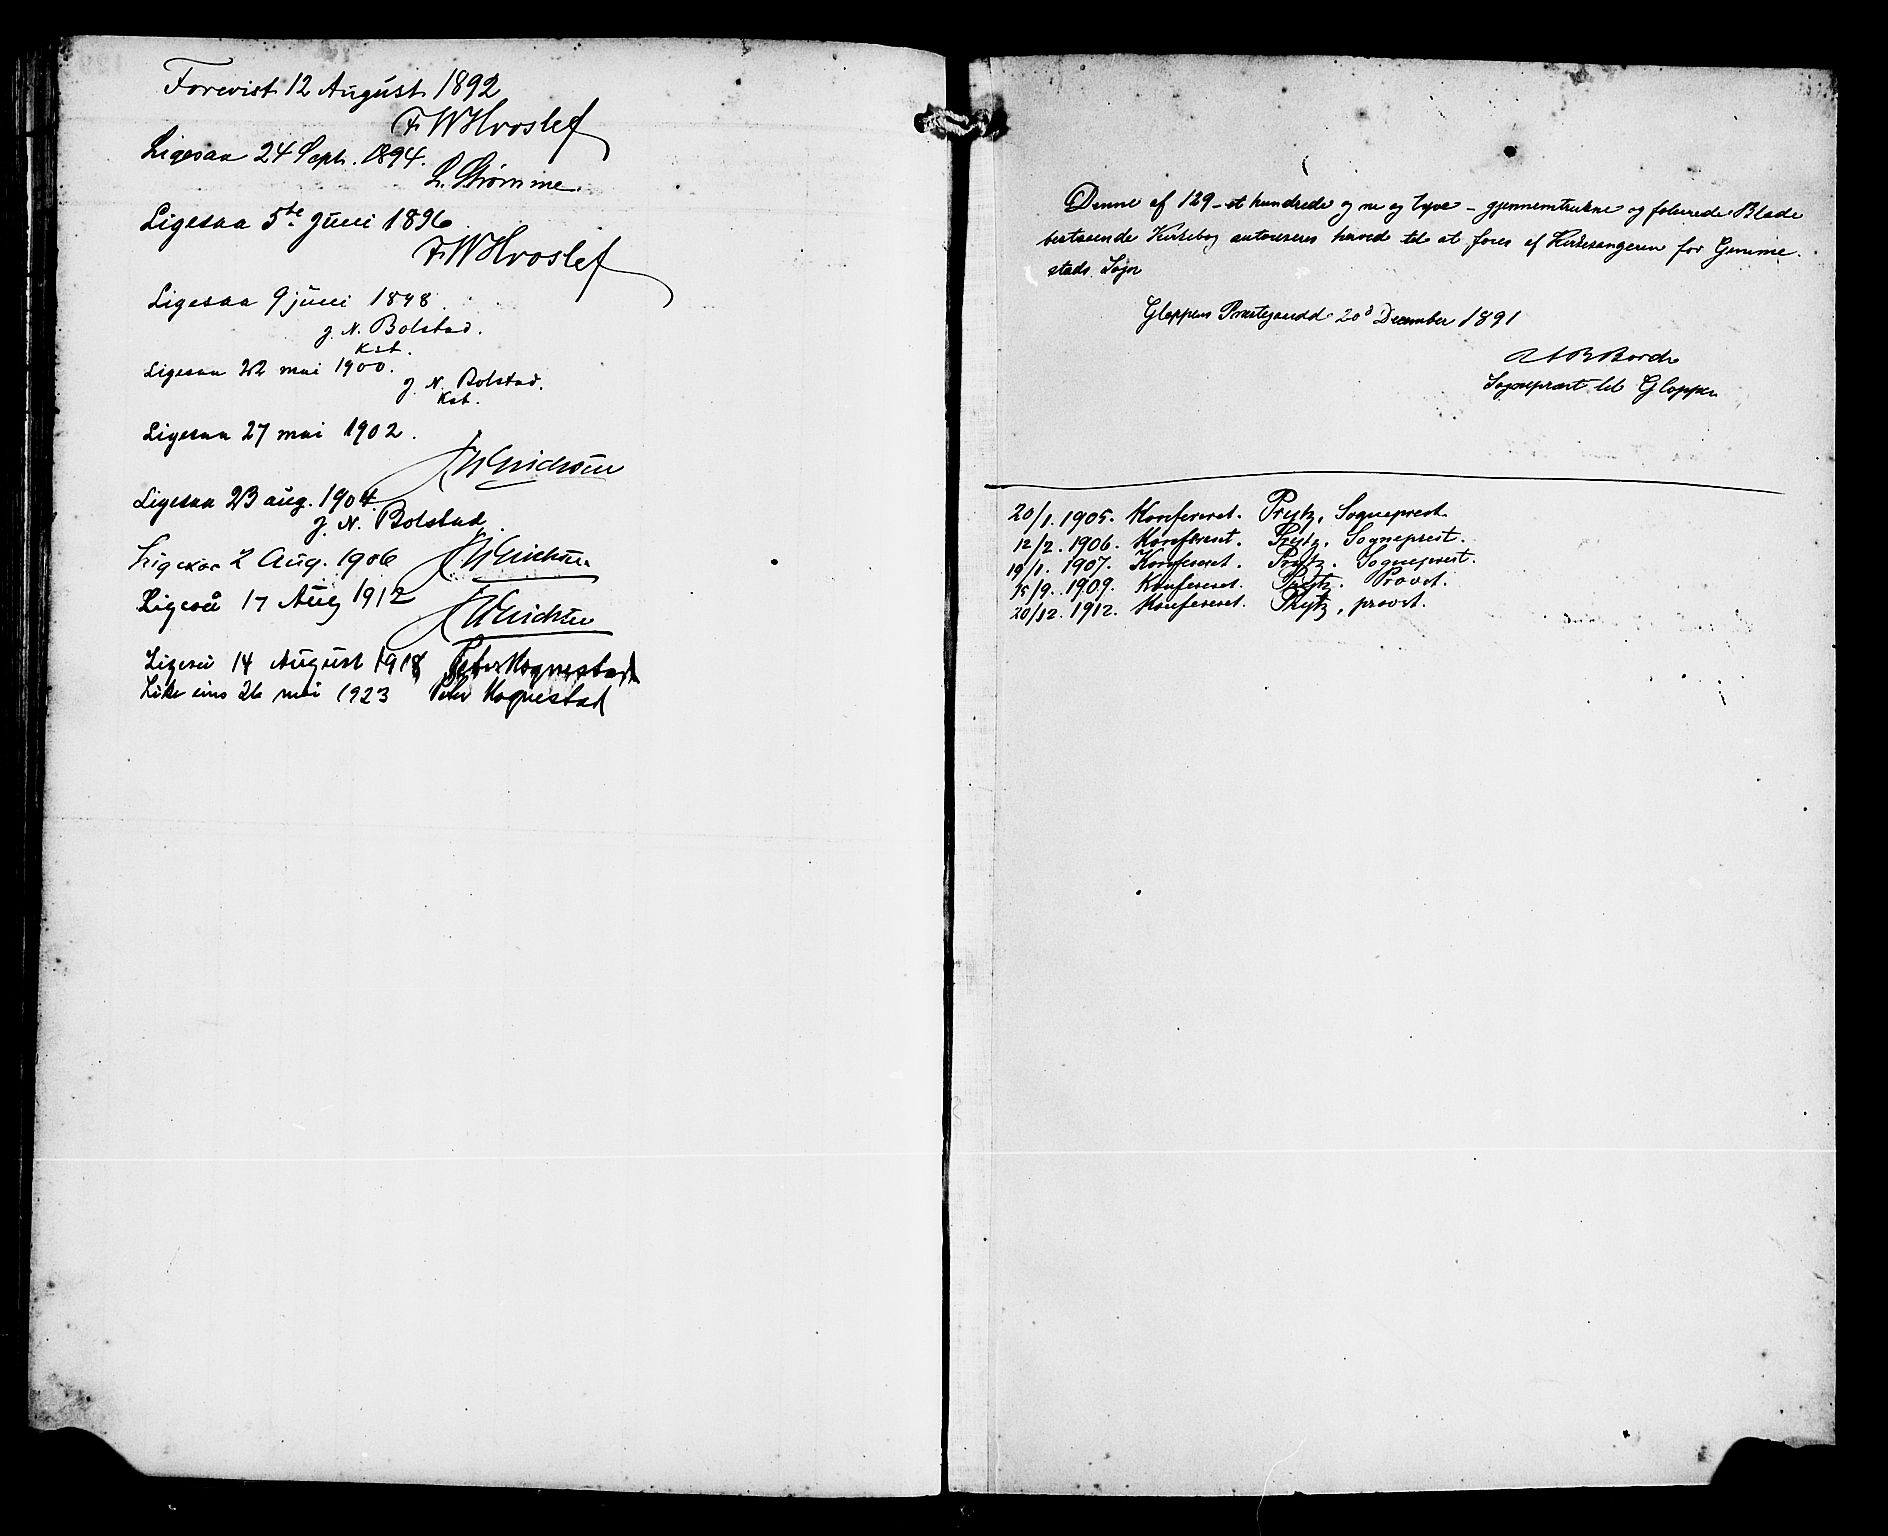 Forevist 12 August 1892
F. W Hvoslef
Ligesaa 24 Sept. 1894.
L. Strømme.
Ligesaa 5te Juni 1896
F. W Hvoslef
Ligesaa 9 juni 1898.
J. N. Bolstad.
Kst.
Ligesaa 22 mai 1900.
J. N. Bolstad.
Kst.
Ligesaa 27 mai 1902.
Erichsen
Ligesaa 23 aug. 1904.
J. N. Bolstad.
Ligesaa 2 Aug. 1906 Erichsen
Ligeså 17 Aug 1912
Erichsen
Ligeså 14 August 1918 Peter Hognestad
Like eins 26 mai 1923 Peter Hognestad
Denne af 129 - et hundrede og ni og tyve - gjennemtrukne og folierede Blade
bestaaende Kirkebog autoriseres herved til at føres af Kirkesangeren for Gimme-
stads Sogn
Gloppens Præstegaard 20d December 1891
Sognepræst til Gloppen
20/1. 1905. Konfereret. Prytz, Sogneprest.
12/2. 1906. Konfereret. Prytz, Sogneprest.
19/1. 1907. Konfereret. Prytz. Sogneprest.
15/9. 1909. Konfereret. Prytz. Provst.
20/12. 1912. Konfereret. Prytz, provst.